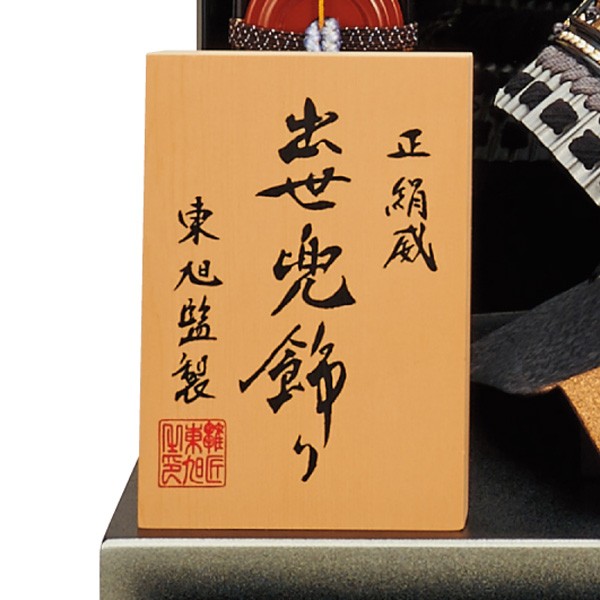 正絹威
出世兜飾り
東旭監製
雛匠東旭之印